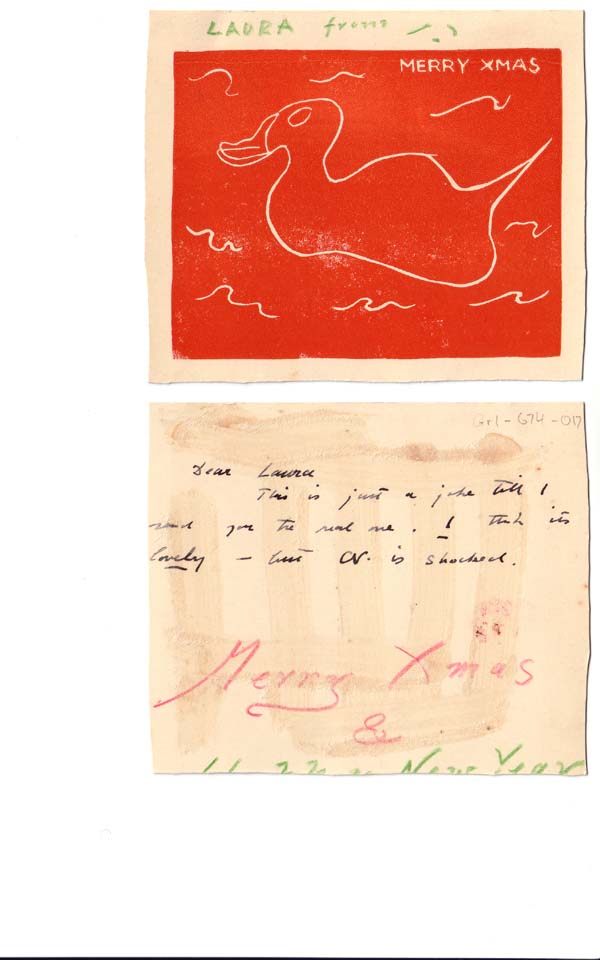 LAURA from
MERRY XMAS
Grl-674-017
Dear Laura
This is just a joke till I
send you the real one. I think its
lovely - but CV. is shocked.
Merry Xmas
&
New Year